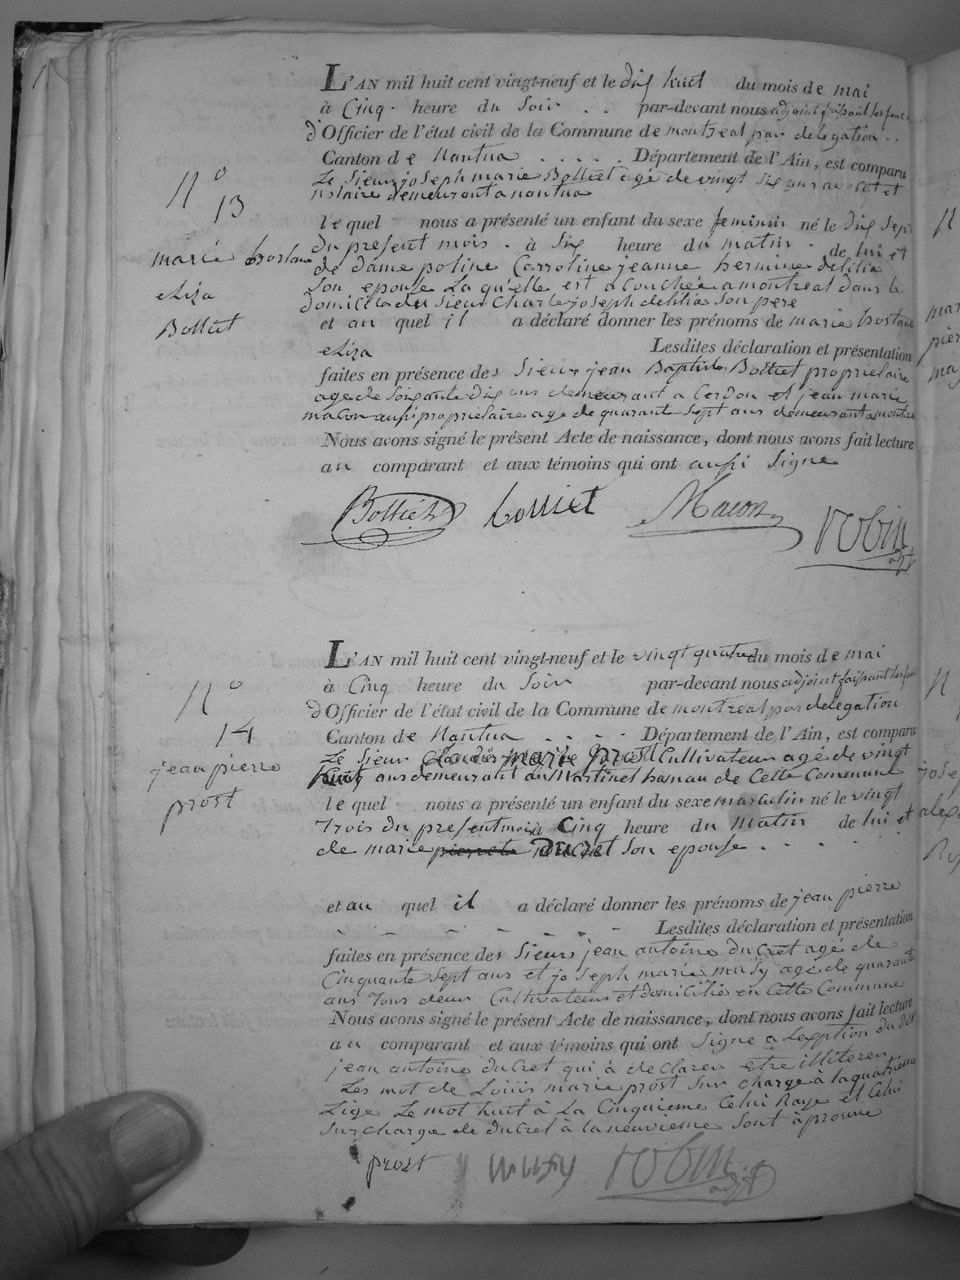 L'AN mil huit cent vingt-neuf et le dix huit du mois de mai
à Cinq heure du Soir . . par-devant nous adjoint faisant les fonct
d'Officier de l'état civil de la Commune de montreal par delegation . .
Canton de Nantua . . . . . Département de l'Ain, est comparu
Le Sieur joseph marie Bolliet agé de vingt six ans avocat et
notaire demeurant a nantua
N° 13
lequel nous a présenté un enfant du sexe feminin né le dix sept
du present mois . à Six heure du matin . de lui et
marie
eliza
Bolliet
de dame poline Carroline jeanne hermine delilia
Son epouse La quelle est acouchée a montreal dans le
domicile du Sieur Charle joseph delilia Son pere
et au quel il a déclaré donner les prénoms de marie
eliza Lesdites déclaration et présentation
faites en présence des Sieurs jean Baptiste Bolliet proprietaire
age de Soixante dix ans demeurant a Cerdon et jean marie
macon aussi proprietaire age de quarante Sept ans demeurant a montreal
Nous avons signé le présent Acte de naissance, dont nous avons fait lecture
au comparant et aux témoins qui ont aussi Signe
Bolliet Bolliet Macon robin
adjt
L'AN mil huit cent vingt-neuf et le vingt quatre du mois de mai
à Cinq heure du Soir par-devant nous adjoint faisant les fonct
d'Officier de l'état civil de la Commune de montreal par delegation
N° 14
Canton de Nantua . . . . Département de l'Ain, est comparu
Le Sieur marie prost Cultivateur agé de vingt
huit ans demeurant au Martinet hamau de Cette Commune
jean pierre
prost
lequel nous a présenté un enfant du sexe masculin né le vingt
Trois du present mois à Cinq heure du matin de lui et
de marie pierrete DUCRET Son epouse . . . .
et au quel il a déclaré donner les prénoms de jean pierre
Lesdites déclaration et présentation
faites en présence des Sieurs jean antoine ducret agé de
Cinquante Sept ans et joseph marie musy agé de quarante
ans Tous deux Cultivateurs et domiciliés en Cette Commune
Nous avons signé le présent Acte de naissance, dont nous avons fait lecture
au comparant et aux témoins qui ont Signe a Lexption du dit
jean antoine ducret qui à declaren etre illiteren
Les mot de Louis marie prost Sur chargé à la quatrieme
Lige Le mot huit à La Cinquieme Celui Raye et Celui
Sur charge de ducret à la neuvieme Sont àprouve
prost musy robin
adjt